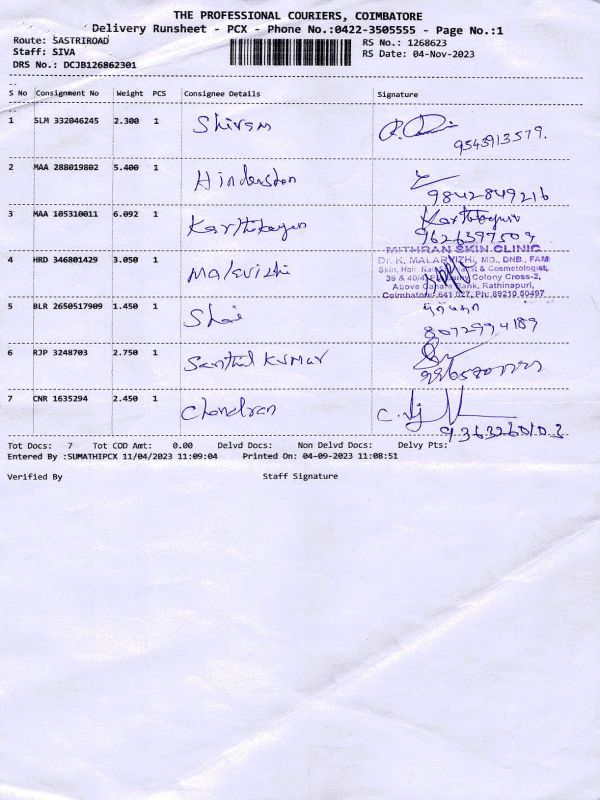 THE PROFESSIONAL COURIERS, COIMBATORE
Delivery Runsheet - PCX - Phone No.:0422-3505555 - Page No.:1
Route: SASTRIROAD RS No.: 1268623
Staff: SIVA RS Date: 04-Nov-2023
DRS No.: DCJB126862301
S No Consignment No Weight PCS Consignee Details Signature
1 SLM 332046245 2.300 1 Shivam
9543913579.
2 MAA 288019802 5.400 1 Hindusthan
9842849216
3 MAA 105310011 6.092 1 Karthikeyan Karthikeyan
9626397509
4 HRD 346801429 3.050 1 Malarvizhi
MITHRAN SKIN CLINIC
Dr. K. MALARVIZHI, MD., DNB., FAM
Skin, Hair, & Cosmetologist,
39 & 40/4, Colony Cross-2,
Above Canara Bank, Rathinapuri,
Coimbatore- 641 027. Ph: 89210 50497
5 BLR 2650517909 1.450 1 Shai
8072994189
6 RJP 3248703 2.750 1 Santhil Kumar
7 CNR 1635294 2.450 1 Chandran
9363260103
Tot Docs: 7 Tot COD Amt: 0.00 Delvd Docs: Non Delvd Docs: Delvy Pts:
Entered By :SUMATHIPCX 11/04/2023 11:09:04 Printed On: 04-09-2023 11:08:51
Verified By Staff Signature